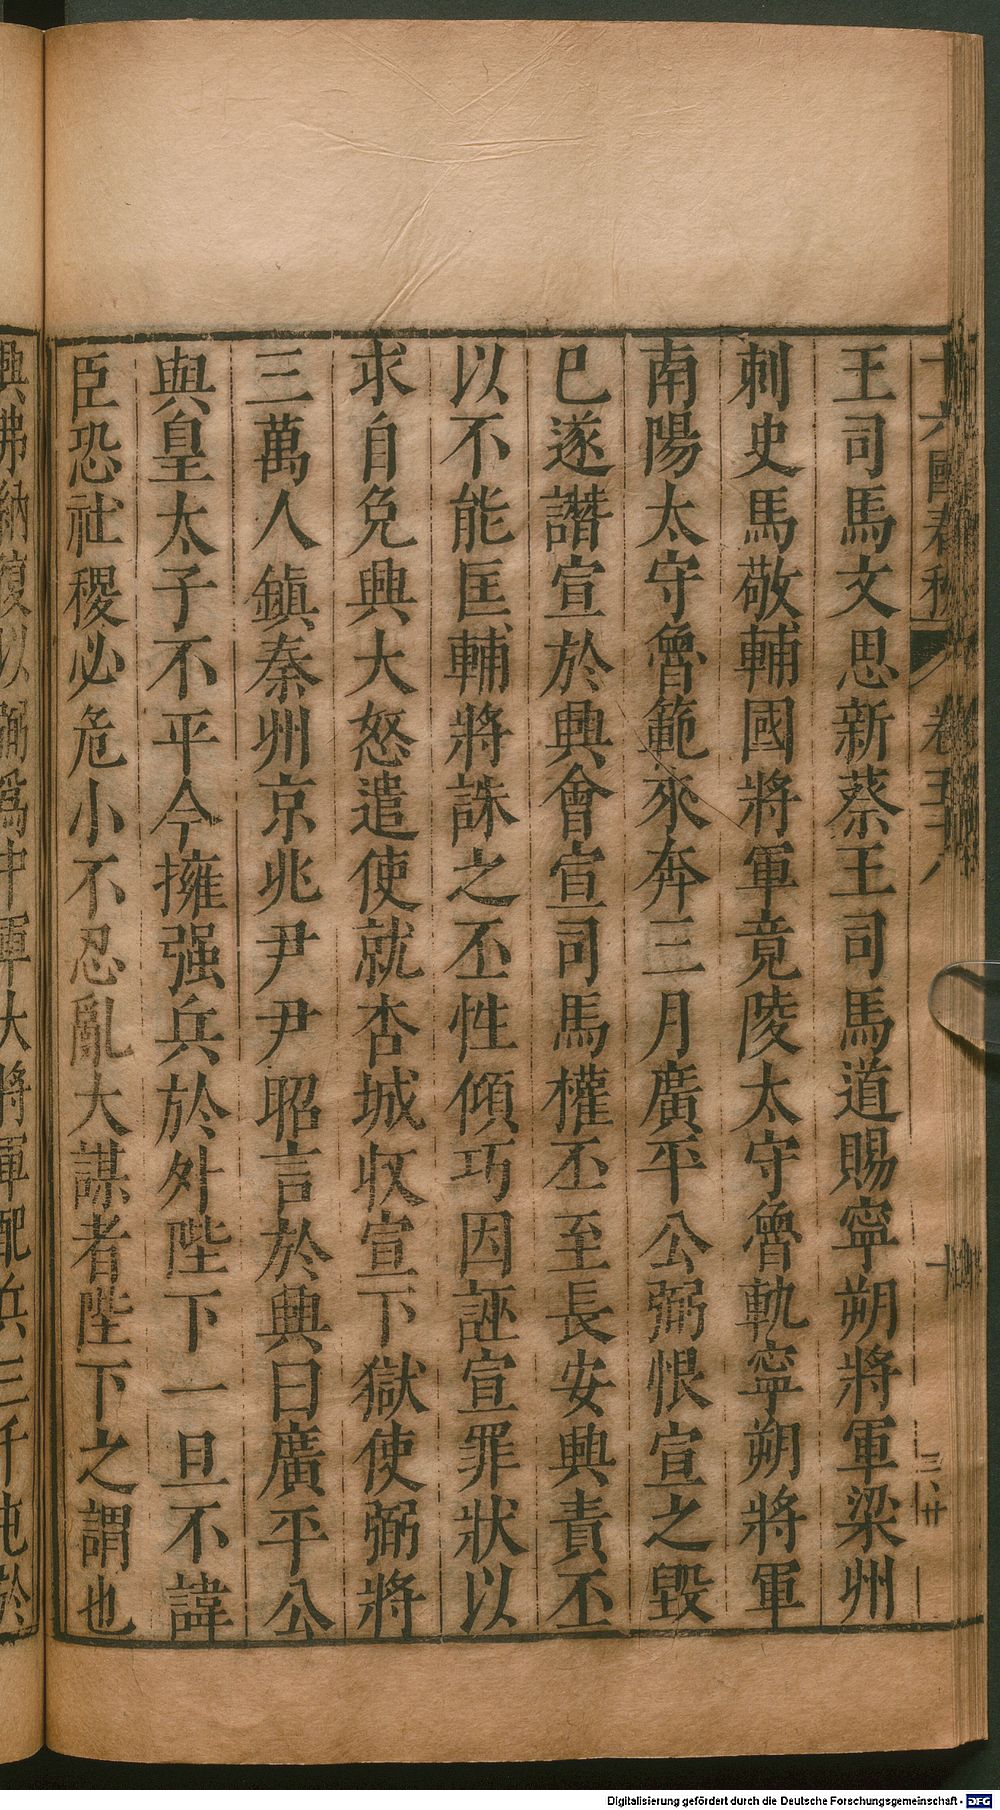 十六國春秋 卷五十八 十
王司馬文思新蔡王司馬道賜寧朔將軍梁州
刺史馬敬輔國將軍竟陵太守魯軌寧朔將軍
南陽太守魯範來奔三月廣平公弼恨宣之毀
已遂譖宣於興會宣司馬權丕至長安興責丕
以不能匡輔將誅之丕性傾巧因誣宣罪狀以
求自免興大怒遣使就杏城收宣下獄使弼將
三萬人鎮秦州京兆尹尹昭言於興曰廣平公
與皇太子不平今擁强兵於外陛下一旦不諱
臣恐社稷必危小不忍亂大謀者陛下之謂也
興弗納復以弼爲中軍大將軍配兵三千屯於
Digitalisierung gefördert durch die Deutsche Forschungsgemeinschaft - DFG